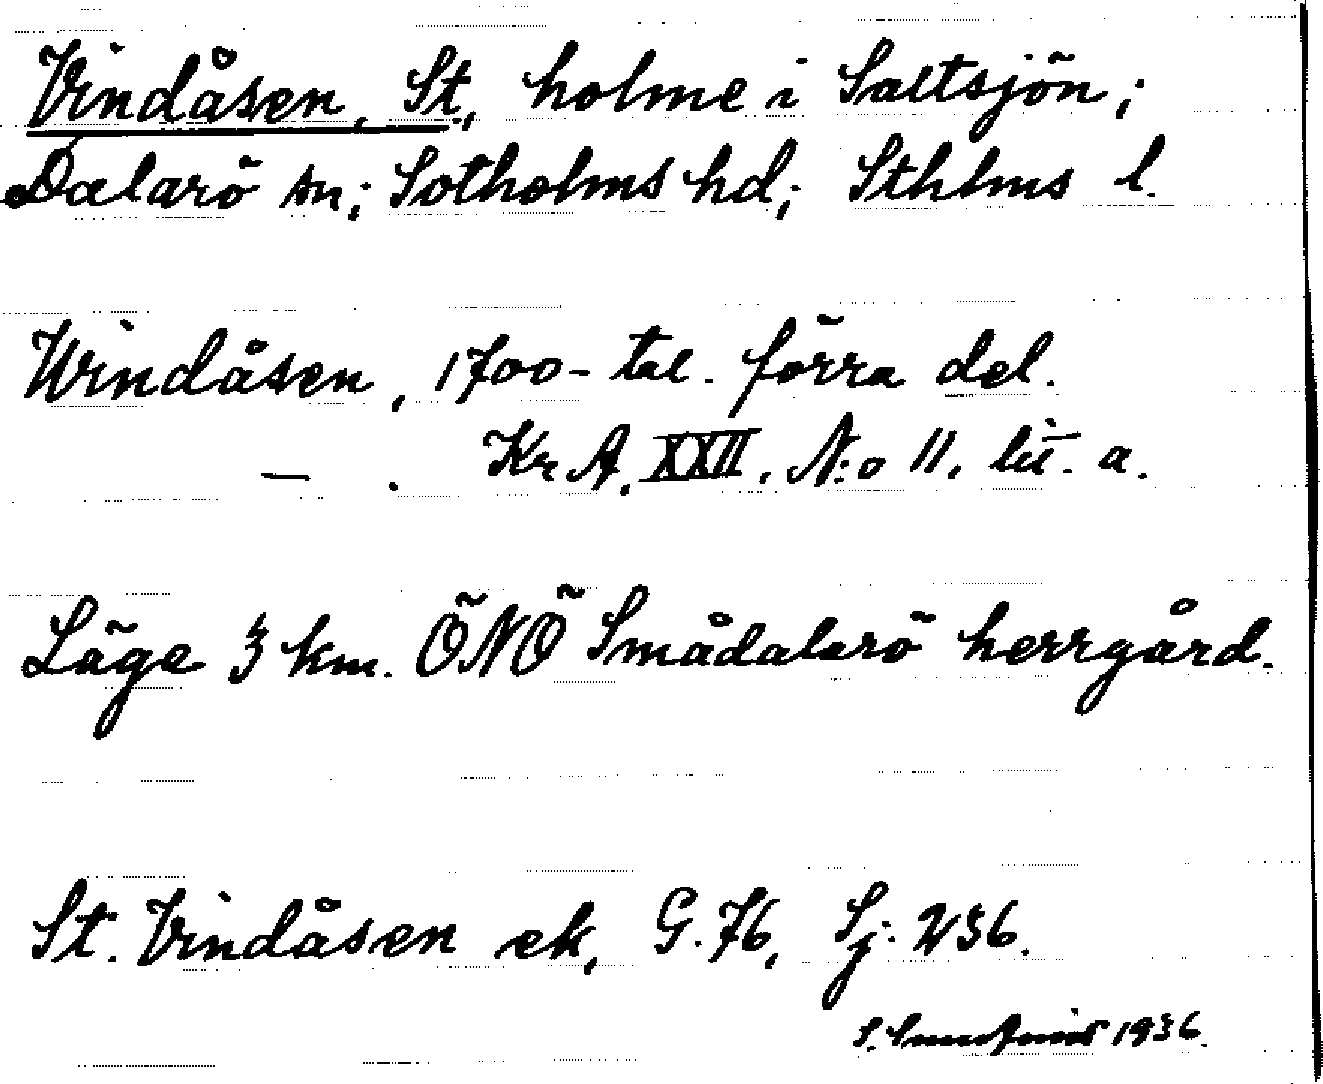 Vindåsen, St, holme i Saltsjön;
Dalarö sn; Sotholms hd; Sthlms l.
Windåsen, 1700-tal. förra del.
— . Kr A. XXII, N:o 11, lit. a.
Läge 3 km. ÖNÖ Smådalarö herrgård.
St. Vindåsen ek, G. 76, Sj. 236.
S. 1936.